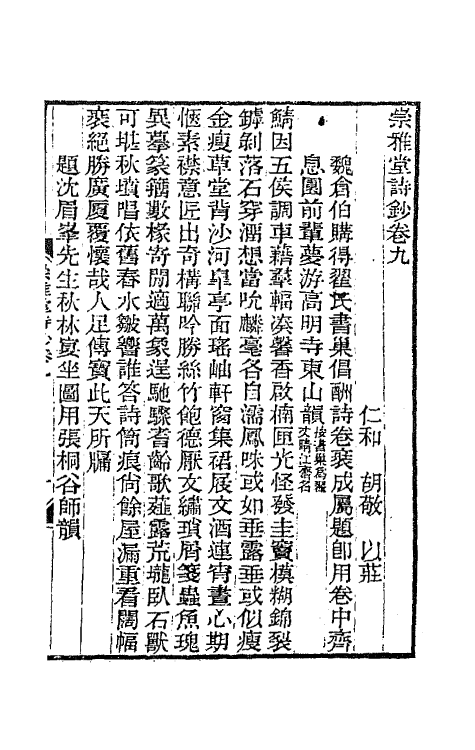 崇雅堂詩鈔卷九
仁和 胡敬 以莊
魏倉伯購得翟氏書巢倡酬詩卷裝成屬題卽用卷中齊
息園前輩夢游高明寺東山韻
鯖因五侯調車藉羣輻湊馨香啟楠匣光怪發圭竇模糊錦裂
罅剝落石穿溜想當吮麟毫各自濡鳳咮或如垂露垂或似瘦
金瘦草堂背沙河皐亭面瑤岫軒窗集裙屐文酒連宵晝心期
愜素襟意匠出奇構聯吟勝絲竹飽德厭文繡瑣屑箋蟲魚瑰
異摹篆籀數椽苟閒適萬象逞馳驟耆齡歌薤露荒壠臥石獸
可堪秋墳唱依舊春水皺響誰答詩筒痕尙餘屋漏重看闊幅
裒絕勝廣廈覆懷哉人足傳寶此天所牖
題沈眉峯先生秋林宴坐圖用張桐谷師韻